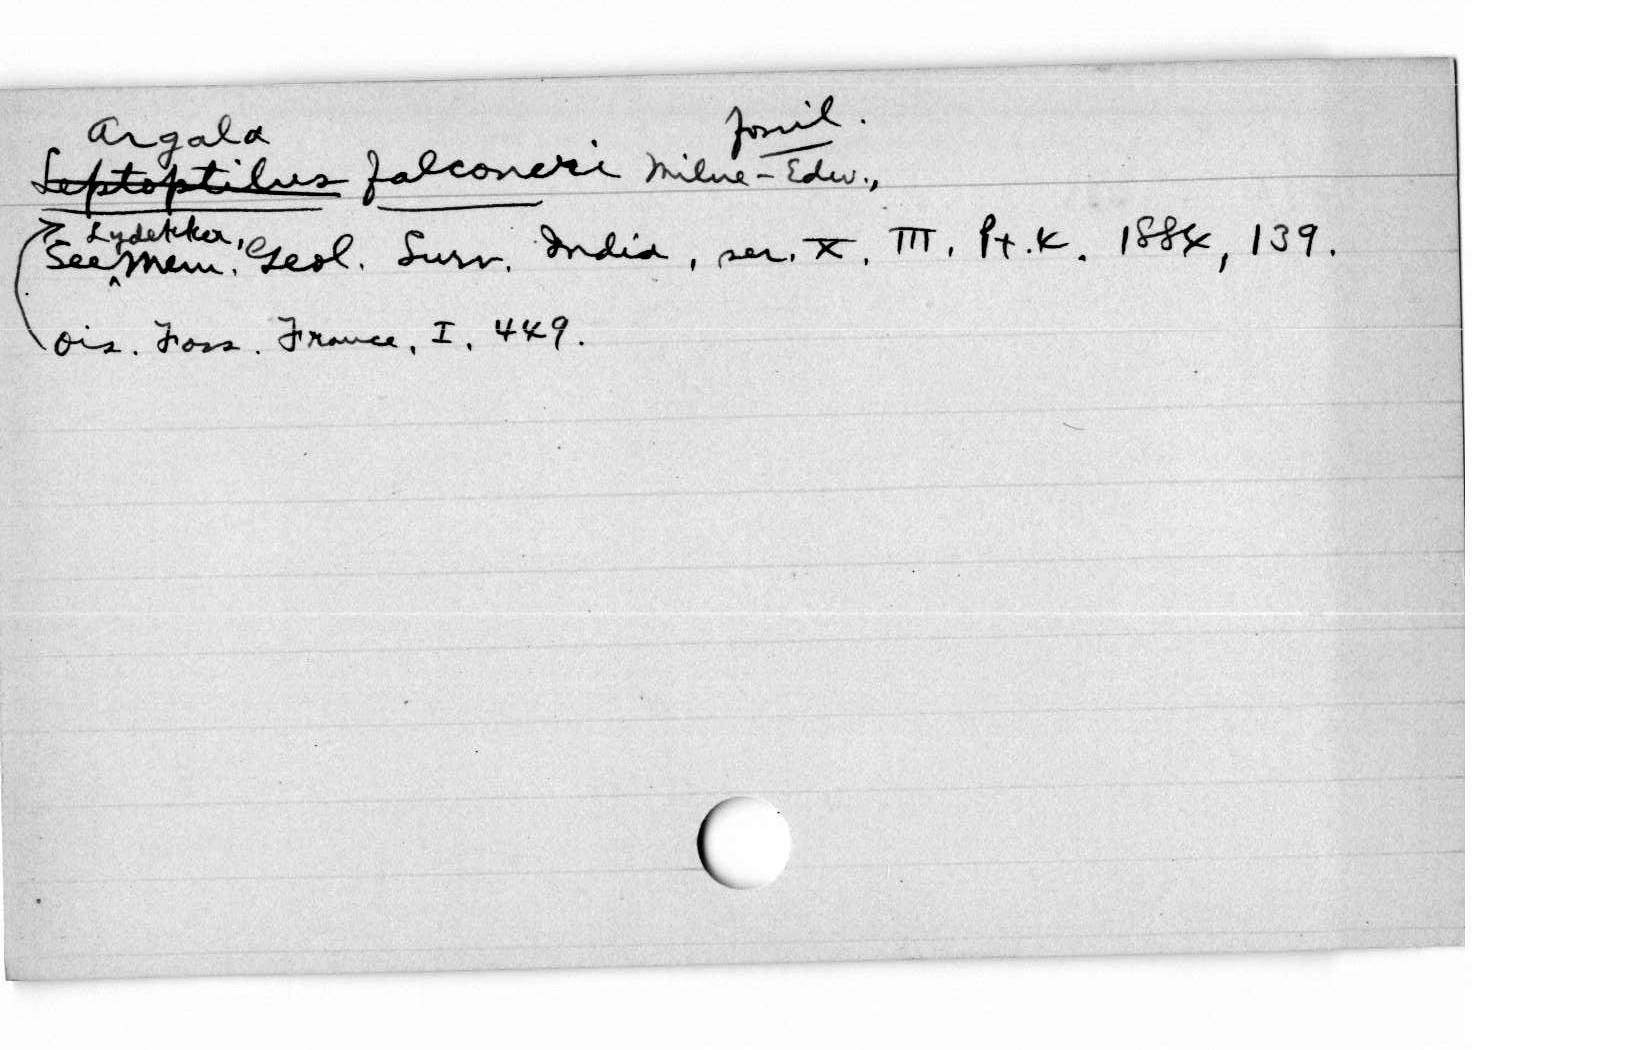 Argala fossil.
Leptoptilus falconeri Milne-Edw.,
Lydekker,
See Mem. Geol. Surv. India, ser. X, III, Pt. 4. 1884, 139.
Ois. Foss. France, I, 449.